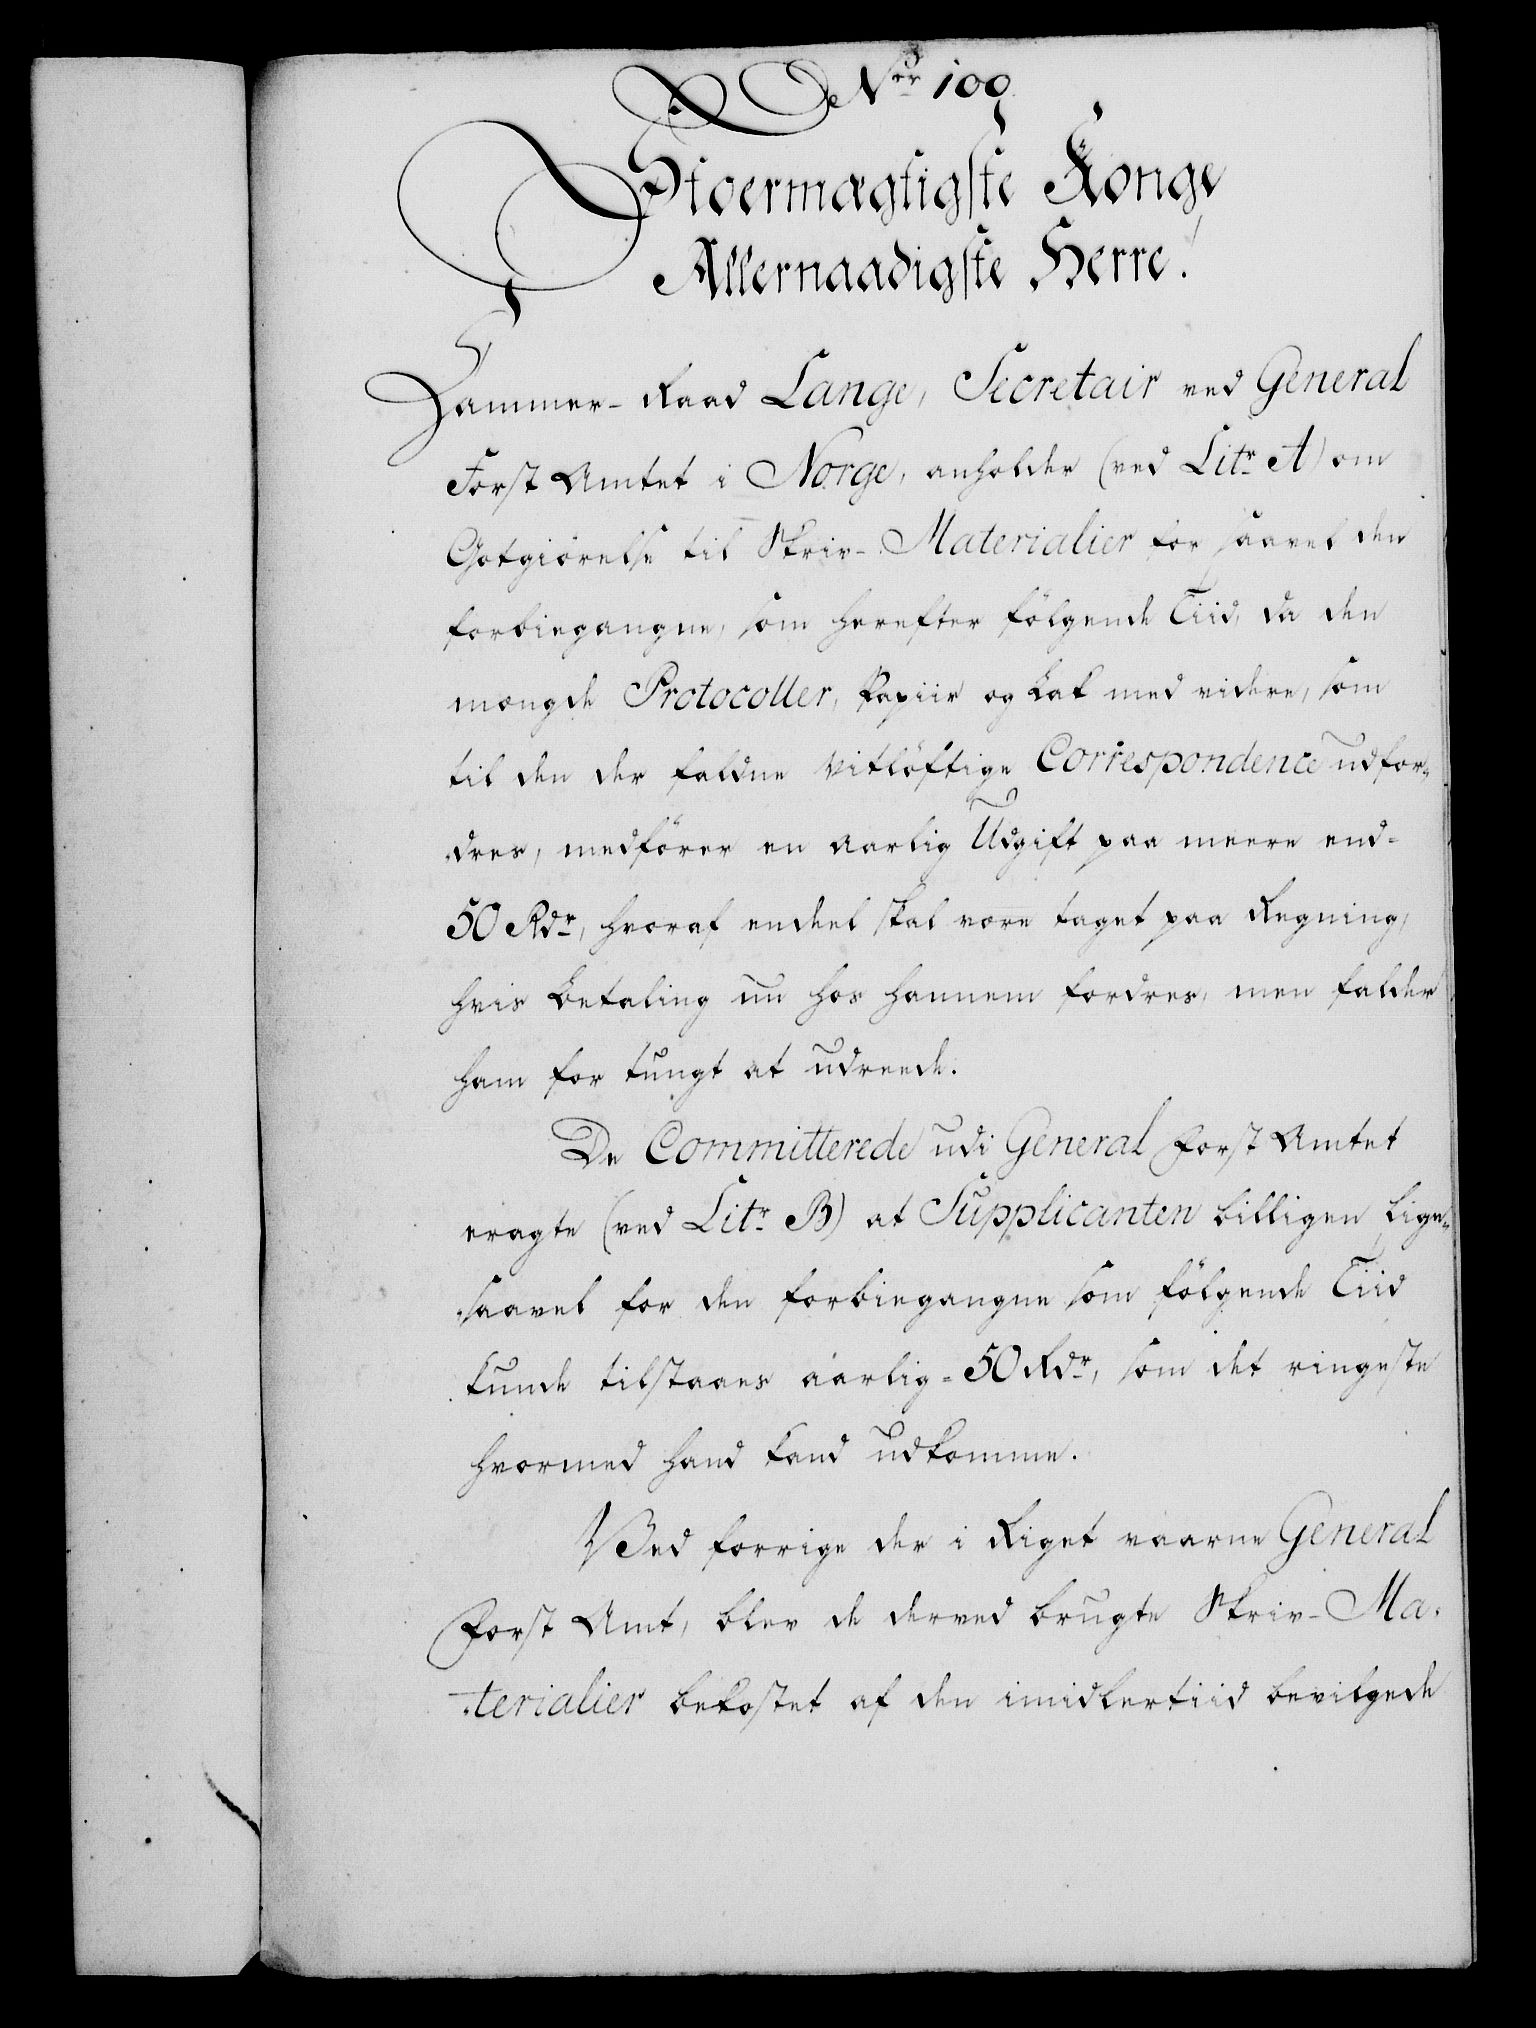 Nr 109
Stoermægtigste Konge
Allernaadigste Herre!
Kammer-Raad Lange, Secretair ved General
Forst Amtet i Norge, anholder (ved Litr A) om
Gotgiörelse til Skriv-Materialier for saavel den
forbiegangne, som herefter fölgende Tiid, da den
mængde Protocoller, Papiir og Lak med videre, som
til den der faldne vitlöftige Correspondence udfor-
dres, medförer en aarlig Udgift paa meere end-
50 Rdr, hvoraf endeel skal være taget paa Regning,
hvis betaling nu hos hannem fordres, men falder
ham for tungt at udreede.
De Committerede udi General Forst Amtet
eragte (ved Litr B) at Supplicanten billigen lige-
saavel for den forbiegangne som fölgende Tiid
kunde tilstaaes aarlig-50 Rdr, som det ringeste
hvormed hand kand udkomme.
Ved forrige der i Riget værne General
Forst Amt, blev de derved brugte Skriv-Ma-
terialier bekostet af den imidlertiid bevilgede